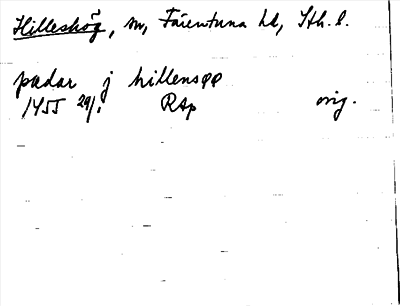 Hilleshög, sn, Färentuna hd, Sth. l.
pædar j hillensøø
1455 29/1 RAp orig.